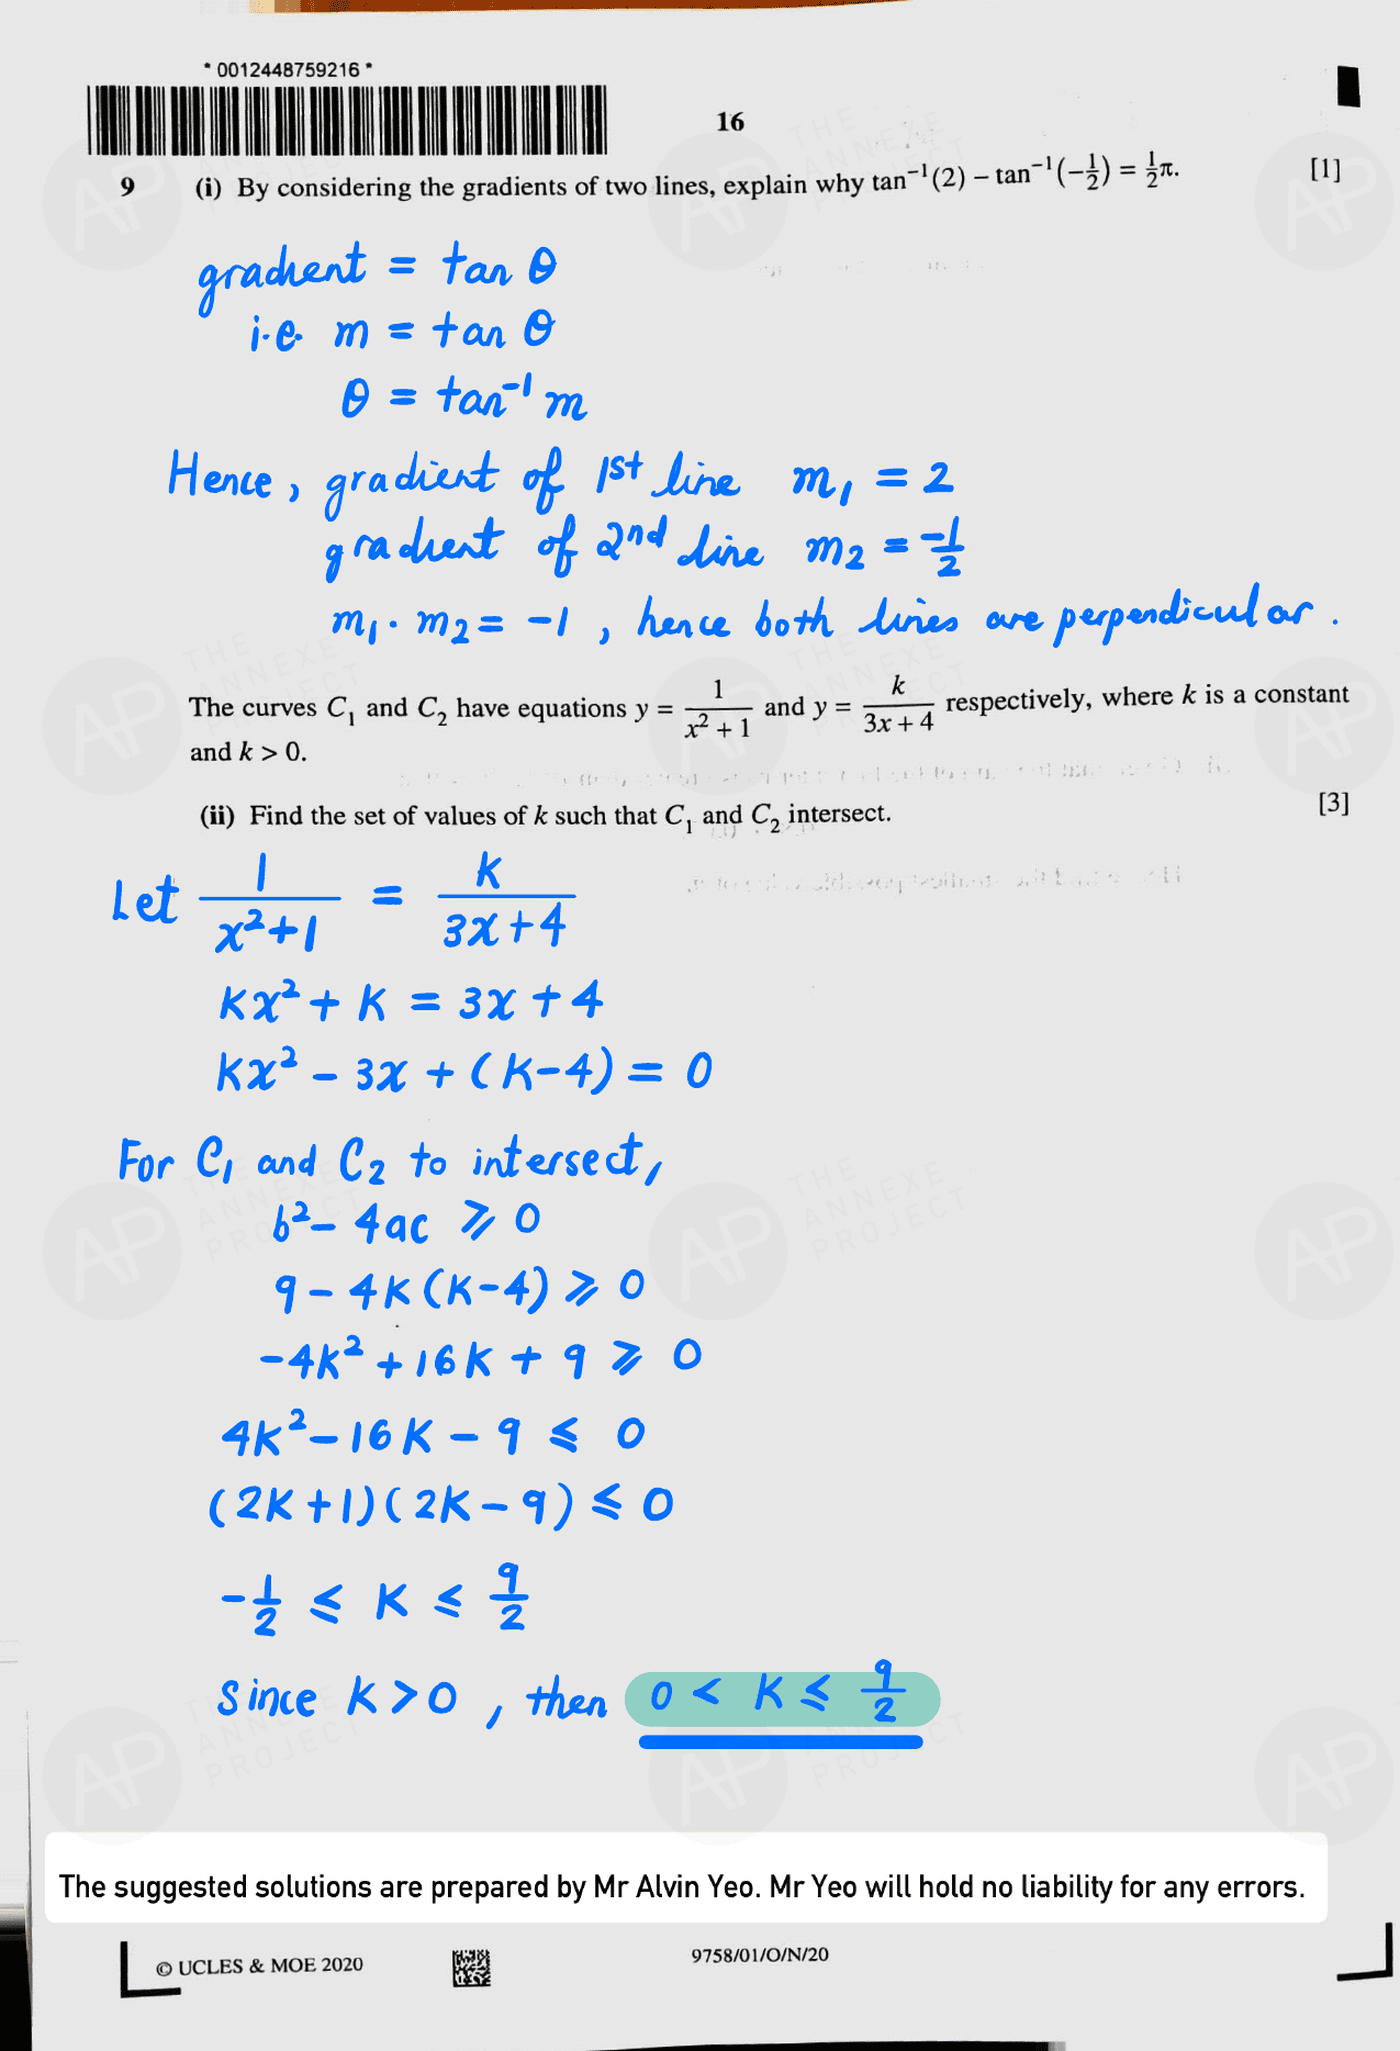 * 0012448759216 *
16
9 (i) By considering the gradients of two lines, explain why tan⁻¹(2) − tan⁻¹(−½) = ½π. [1]
gradient = tan θ
i.e. m = tan θ
θ = tan⁻¹ m
Hence, gradient of 1st line m₁ = 2
gradient of 2nd line m₂ = -1/2
m₁ · m₂ = -1, hence both lines are perpendicular.
The curves C₁ and C₂ have equations y = 1/(x² + 1) and y = k/(3x + 4) respectively, where k is a constant
and k > 0.
(ii) Find the set of values of k such that C₁ and C₂ intersect. [3]
Let 1/(x²+1) = k/(3x+4)
kx² + k = 3x + 4
kx² - 3x + (k-4) = 0
For C₁ and C₂ to intersect,
b² - 4ac ⩾ 0
9 - 4k(k-4) ⩾ 0
-4k² + 16k + 9 ⩾ 0
4k² - 16k - 9 ⩽ 0
(2k+1)(2k-9) ⩽ 0
-1/2 ⩽ k ⩽ 9/2
Since k > 0, then 0 < k ⩽ 9/2
The suggested solutions are prepared by Mr Alvin Yeo. Mr Yeo will hold no liability for any errors.
© UCLES & MOE 2020 9758/01/O/N/20
AP THE ANNEXE PROJECT